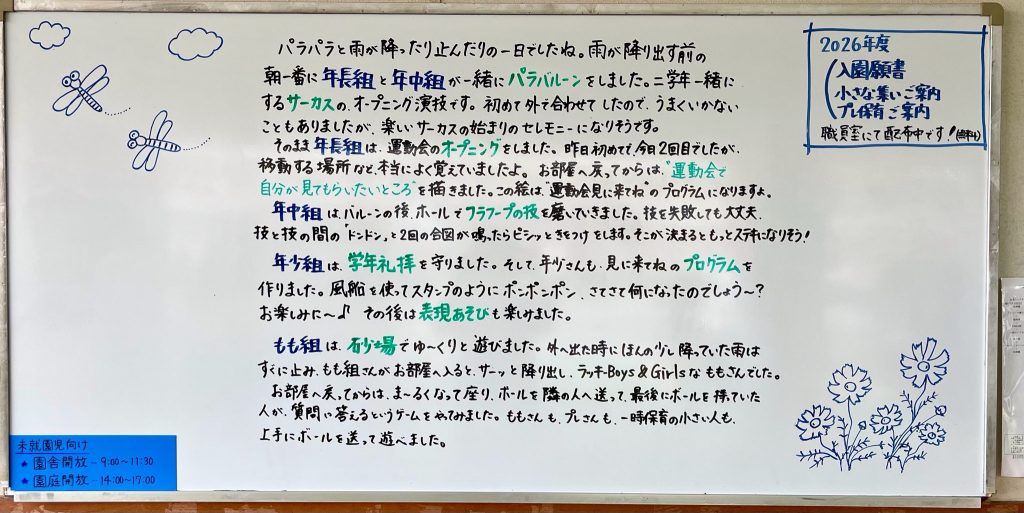 パラパラと雨が降ったり止んだりの一日でしたね。雨が降り出す前の
朝一番に年長組と年中組が一緒にパラバルーンをしました。二学年一緒に
するサーカスの、オープニング演技です。初めて外で合わせてしたので、うまくいかない
こともありましたが、楽しいサーカスの始まりのセレモニーになりそうです。
そのまま年長組は、運動会のオープニングをしました。昨日初めてで、今日2回目でしたが、
移動する場所など、本当によく覚えていましたよ。お部屋へ戻ってからは、"運動会で
自分が見てもらいたいところ"を描きました。この絵は、"運動会見に来てね"のプログラムになりますよ。
年中組は、バルーンの後、ホールでフラフープの技を磨いていきました。技を失敗しても大丈夫、
技と技の間の「ドンドン」と2回の合図が鳴ったらピシッときをつけをします。そこが決まるともっとステキになりそう!
年少組は、学年礼拝を守りました。そして、年少さんも、見に来てねのプログラムを
作りました。風船を使ってスタンプのようにポンポンポン、さてさて何になったのでしょう〜?
お楽しみに〜♪ その後は表現あそびも楽しみました。
もも組は、砂場でゆ〜くりと遊びました。外へ出た時にほんの少し降っていた雨は
すぐに止み、もも組さんがお部屋へ入ると、サーッと降り出し、ラッキーBoys & Girlsなももさんでした。
お部屋へ戻ってからは、まーるくなって座り、ボールを隣の人へ送って、最後にボールを持っていた
人が、質問に答えるというゲームをやってみました。ももさんも、プレさんも、一時保育の小さい人も、
上手にボールを送って遊べました。
2026年度
入園願書
小さな集いご案内
プレ保育ご案内
職員室にて配布中です!(無料)
未就園児向け
★園舎開放--9:00〜11:30
★園庭開放--14:00〜17:00